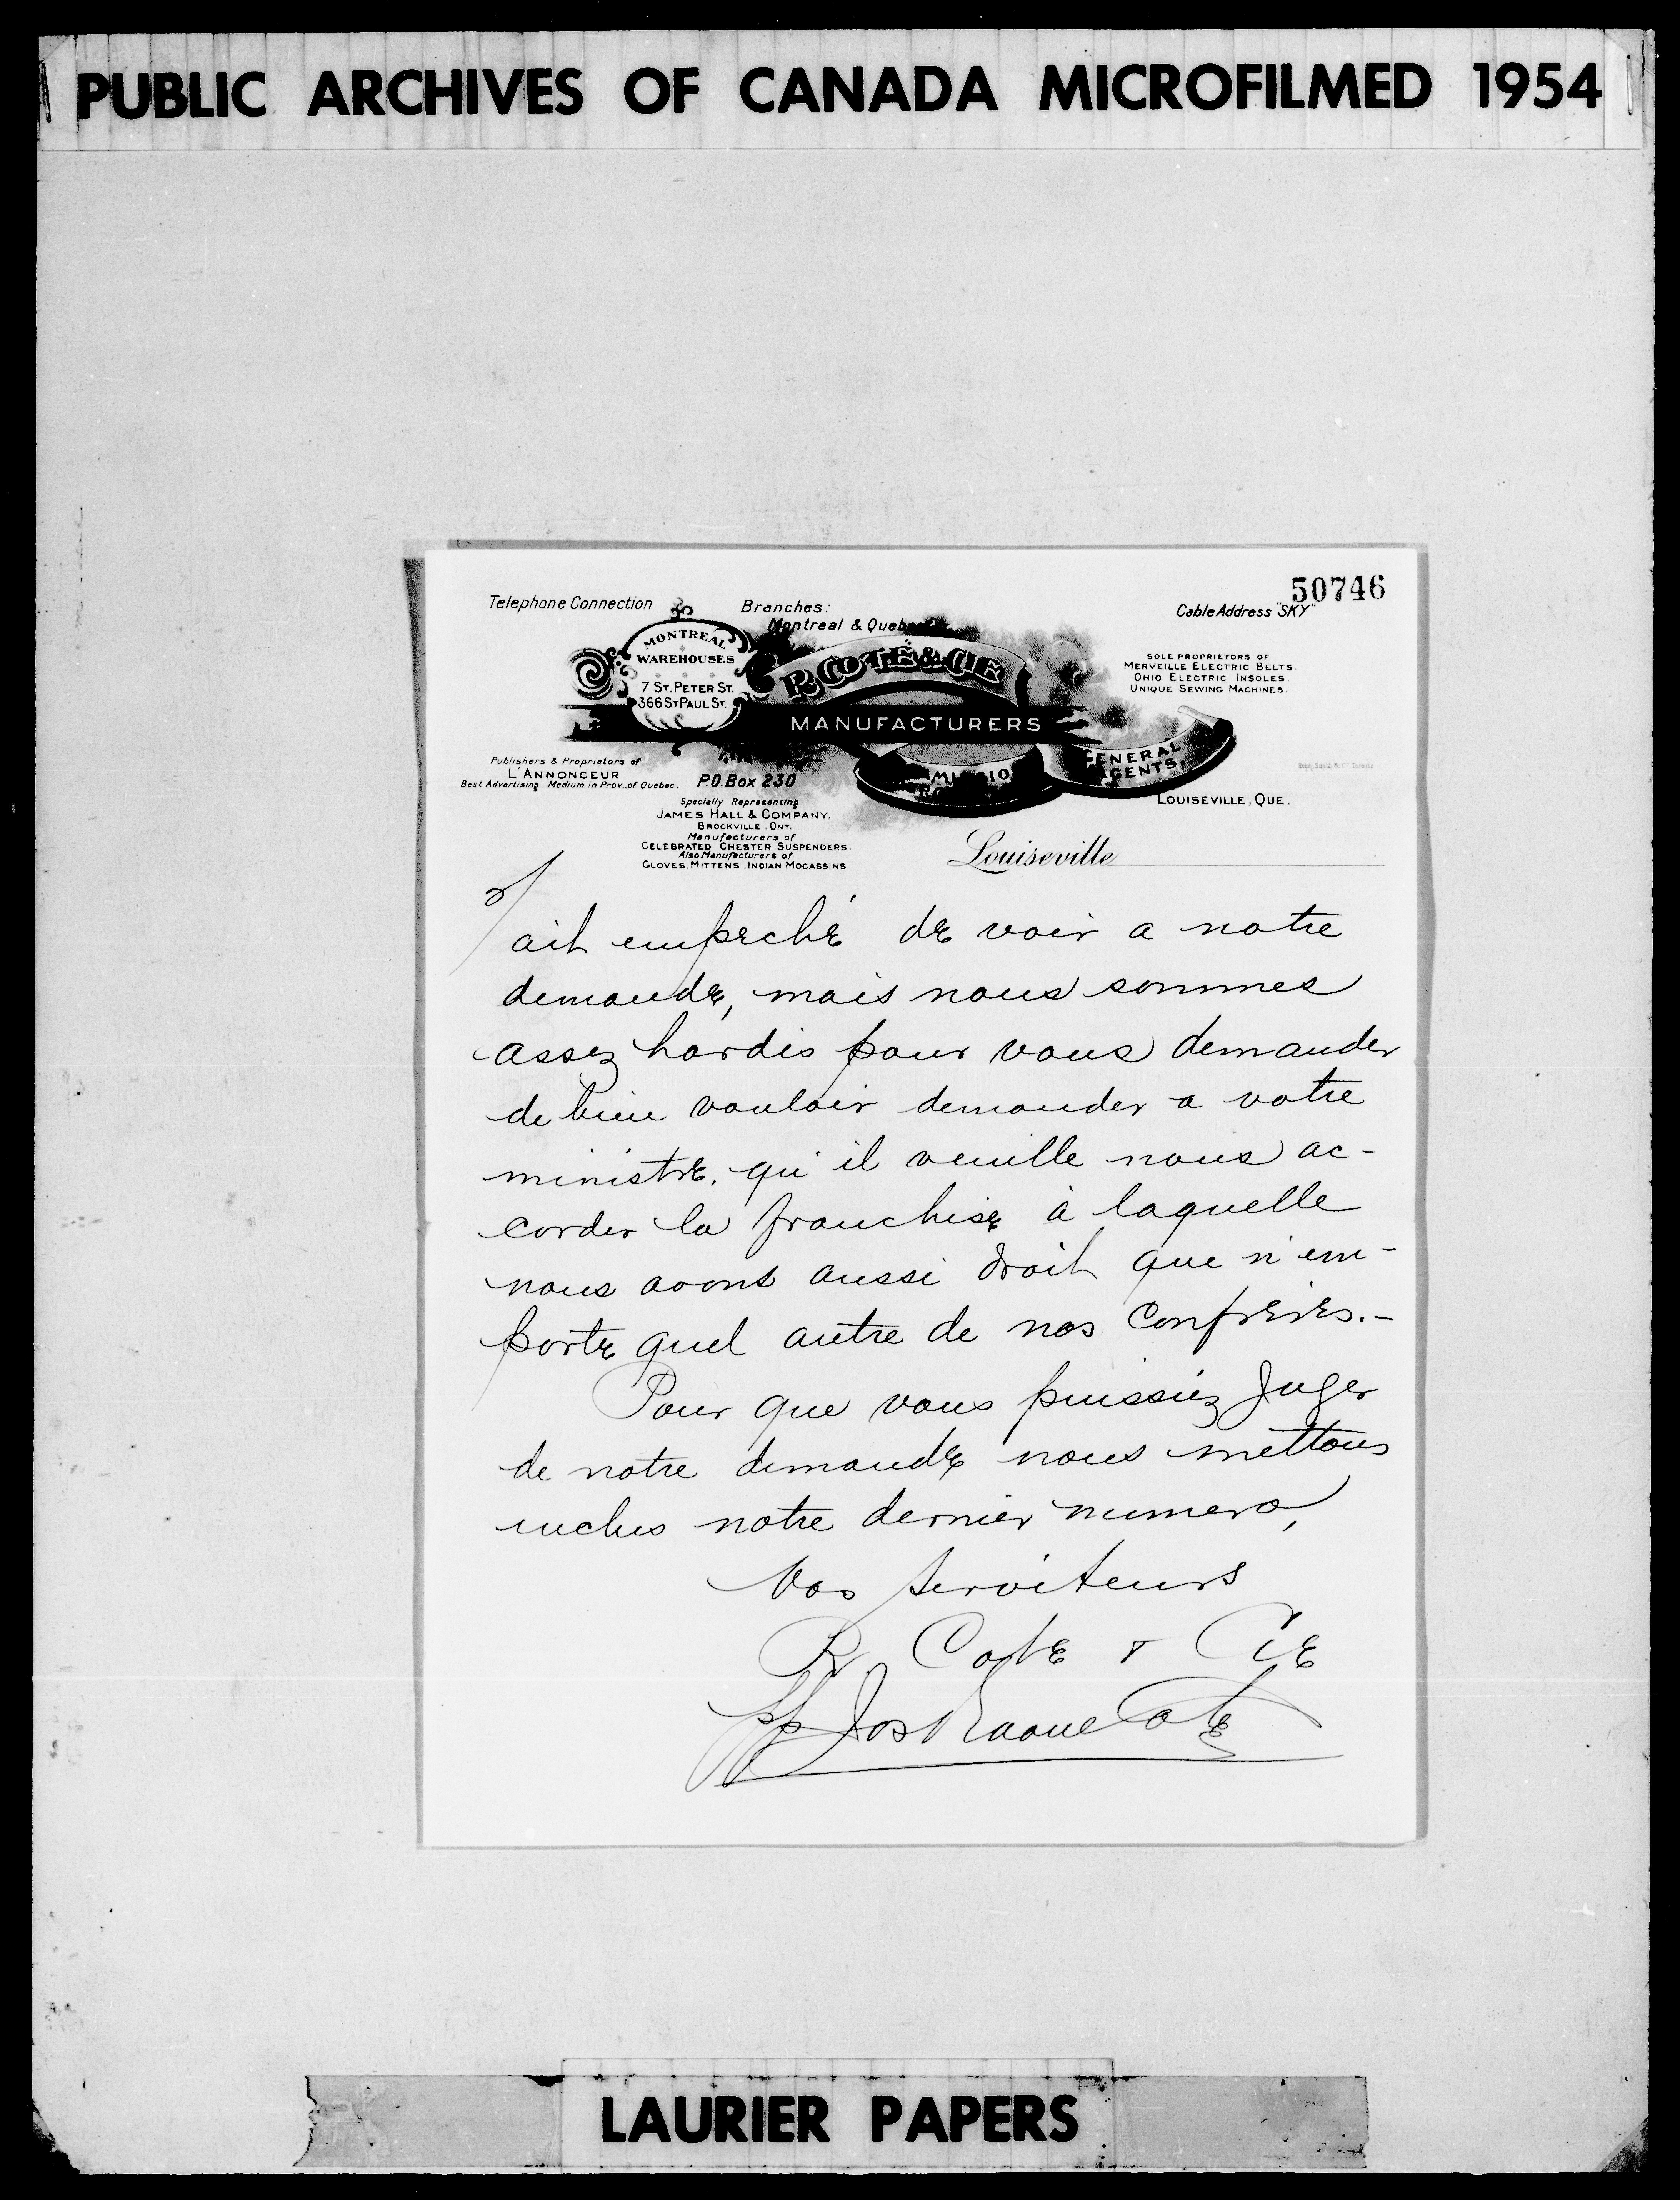 PUBLIC ARCHIVES OF CANADA MICROFILMED 1954
50746
Telephone Connection
Branches:
Montreal & Quebec
Cable Address "SKY"
MONTREAL
WAREHOUSES
7 ST. PETER ST.
366 ST PAUL ST.
R. COTÉ & CIE
MANUFACTURERS
GENERAL
AGENTS,
SOLE PROPRIETORS OF
MERVEILLE ELECTRIC BELTS
OHIO ELECTRIC INSOLES.
UNIQUE SEWING MACHINES.
Publishers & Proprietors of
L'ANNONCEUR
Best Advertising Medium in Prov. of Quebec.
P.O. Box 230
Specially Representing
JAMES HALL & COMPANY.
BROCKVILLE. ONT.
Manufacturers of
CELEBRATED CHESTER SUSPENDERS.
Also Manufacturers of
GLOVES. MITTENS. INDIAN MOCASSINS
LOUISEVILLE, QUE.
Louiseville
2/
ait empeché de voir a notre
demande, mais nous sommes
assez hardis pour vous demander
de bien vouloir demander a votre
ministre. qu'il veuille nous ac-
corder la franchise à laquelle
nous avons aussi droit que n'em-
porte quel autre de nos confreres.-
Pour que vous puissiez Juger
de notre demande nous mettons
inclus notre dernier numero,
Vos serviteurs
R Cote & Cie
pp Jos Raoul Cote
LAURIER PAPERS